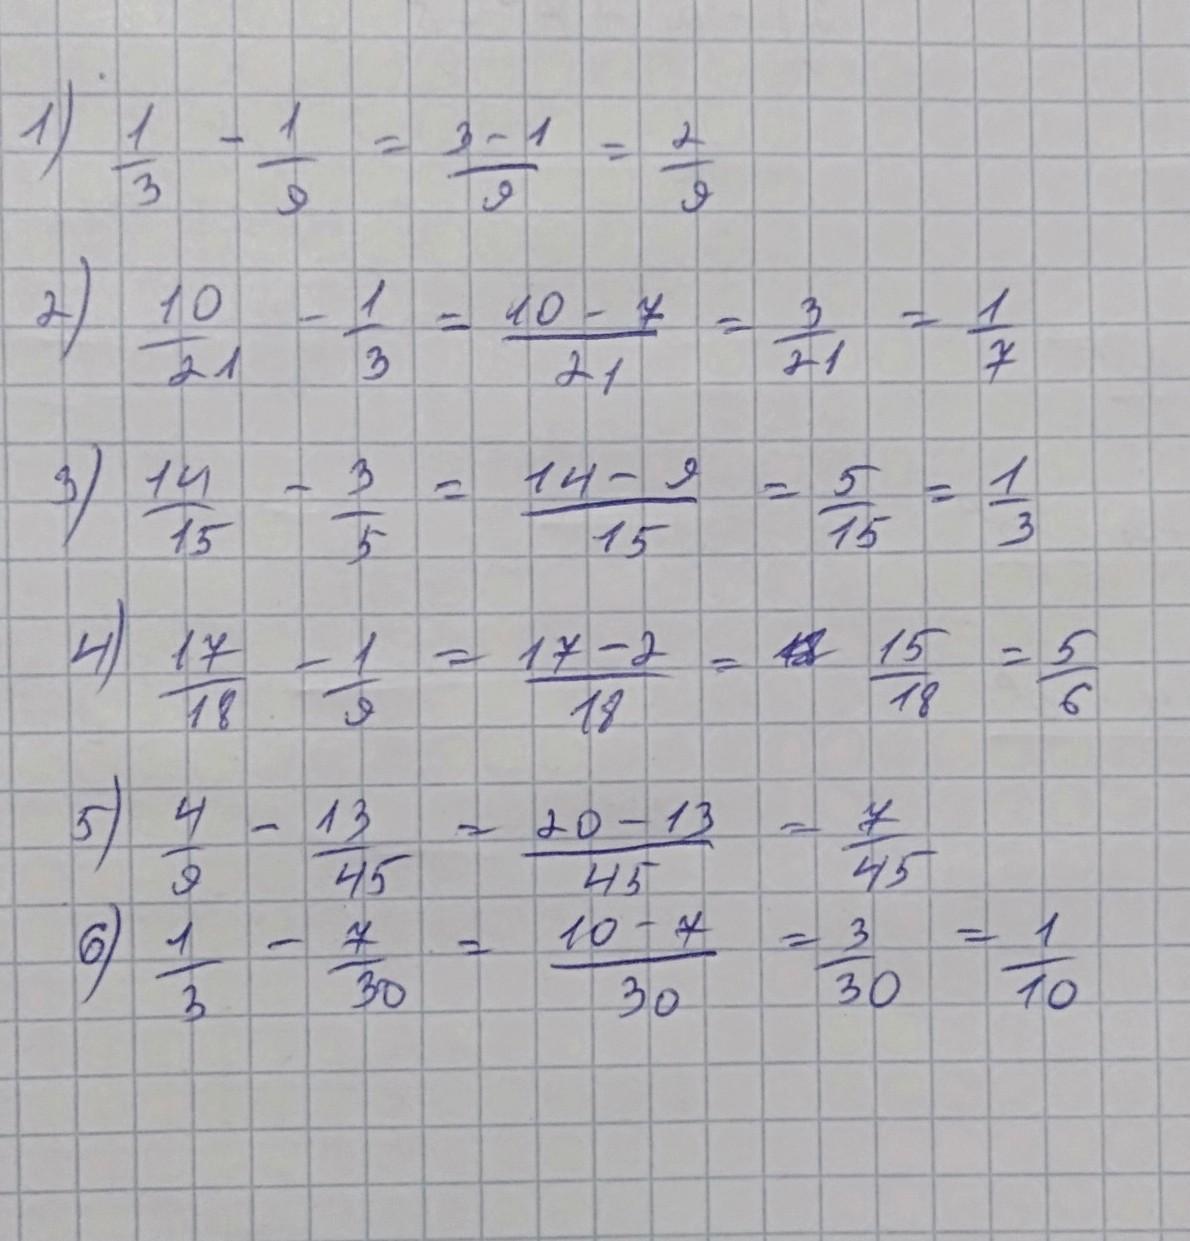 1) 1/3 - 1/9 = (3-1)/9 = 2/9
2) 10/21 - 1/3 = (10-7)/21 = 3/21 = 1/7
3) 14/15 - 3/5 = (14-9)/15 = 5/15 = 1/3
4) 17/18 - 1/9 = (17-2)/18 = 15/18 = 5/6
5) 4/9 - 13/45 = (20-13)/45 = 7/45
6) 1/3 - 7/30 = (10-7)/30 = 3/30 = 1/10